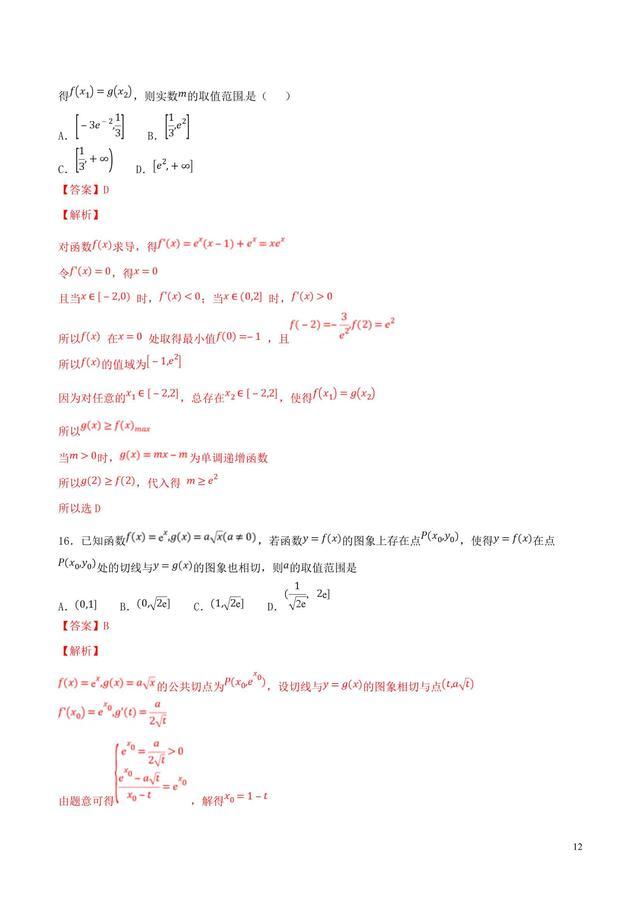 得f(x₁) = g(x₂)，则实数m的取值范围是（　）
A．[−3e⁻², 1/3]　B．[1/3, e²]
C．[1/3, +∞)　D．[e², +∞]
【答案】D
【解析】
对函数f(x)求导，得f'(x) = eˣ(x − 1) + eˣ = xeˣ
令f'(x) = 0，得x = 0
且当x ∈ [−2,0) 时，f'(x) < 0；当x ∈ (0,2] 时，f'(x) > 0
所以f(x) 在x = 0 处取得最小值f(0) = −1 ，且f(−2) = −3/e², f(2) = e²
所以f(x)的值域为[−1,e²]
因为对任意的x₁ ∈ [−2,2]，总存在x₂ ∈ [−2,2]，使得f(x₁) = g(x₂)
所以g(x) ≥ f(x)max
当m > 0时，g(x) = mx − m为单调递增函数
所以g(2) ≥ f(2)，代入得 m ≥ e²
所以选 D
16．已知函数f(x) = eˣ, g(x) = a√x(a ≠ 0)，若函数y = f(x)的图象上存在点P(x₀,y₀)，使得y = f(x)在点
P(x₀,y₀)处的切线与y = g(x)的图象也相切，则a的取值范围是
A．(0,1]　B．(0,√2e]　C．(1,√2e]　D．(1/√2e，2e]
【答案】B
【解析】
f(x) = eˣ, g(x) = a√x的公共切点为P(x₀,e^x₀)，设切线与y = g(x)的图象相切与点(t,a√t)
f'(x₀) = e^x₀, g'(t) = a/(2√t)
由题意可得{e^x₀ = a/(2√t) > 0, (e^x₀ − a√t)/(x₀ − t) = e^x₀ ，解得x₀ = 1 − t
12